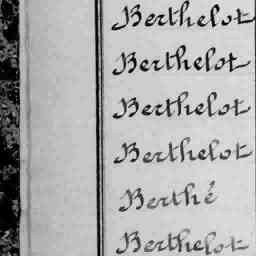 Berthelot
Berthelot
Berthelot
Berthelot
Berthé
Berthelot